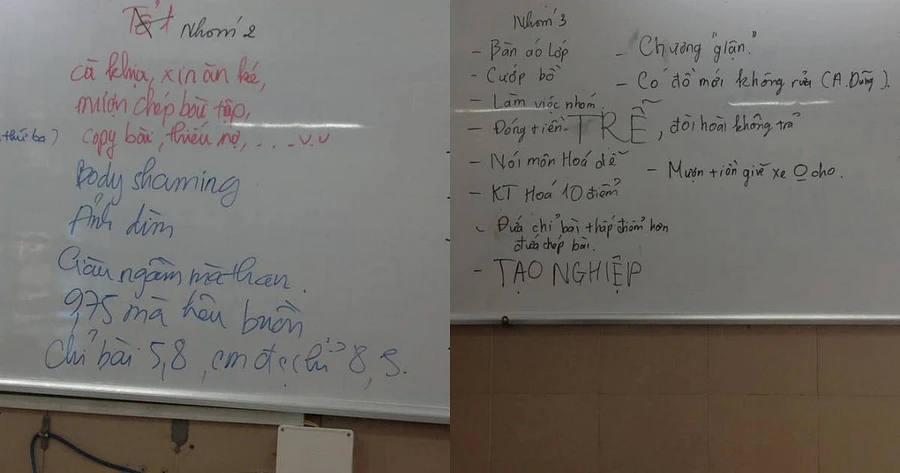 Tổ 1 Nhóm 2
cà khịa, xin ăn ké,
mượn chép bài tập,
thứ ba)
copy bài, thiếu nợ, . . . v.v
Body shaming
Ảnh dìm
Giàu ngầm mà than.
9,75 mà kêu buồn
Chỉ bài 5,8, em đc chỉ 8,5.
Nhóm 3
- Bán áo lớp
- Cướp bồ
- Làm việc nhóm
- Đóng tiền TRỄ, đòi hoài không trả
- Nói môn Hoá dễ
- KT Hoá 10 điểm
- Đứa chỉ bài thấp điểm hơn
đứa chép bài.
- TẠO NGHIỆP
- Chương "giận."
- Có đồ mới không rửa (A. Dũng).
- Mượn tiền giữ xe O cho.